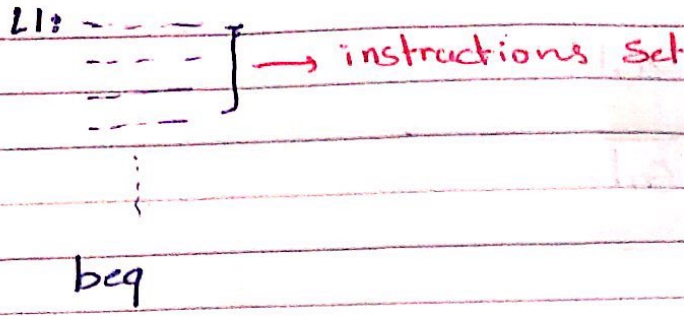 L1:
→ instructions set
beq